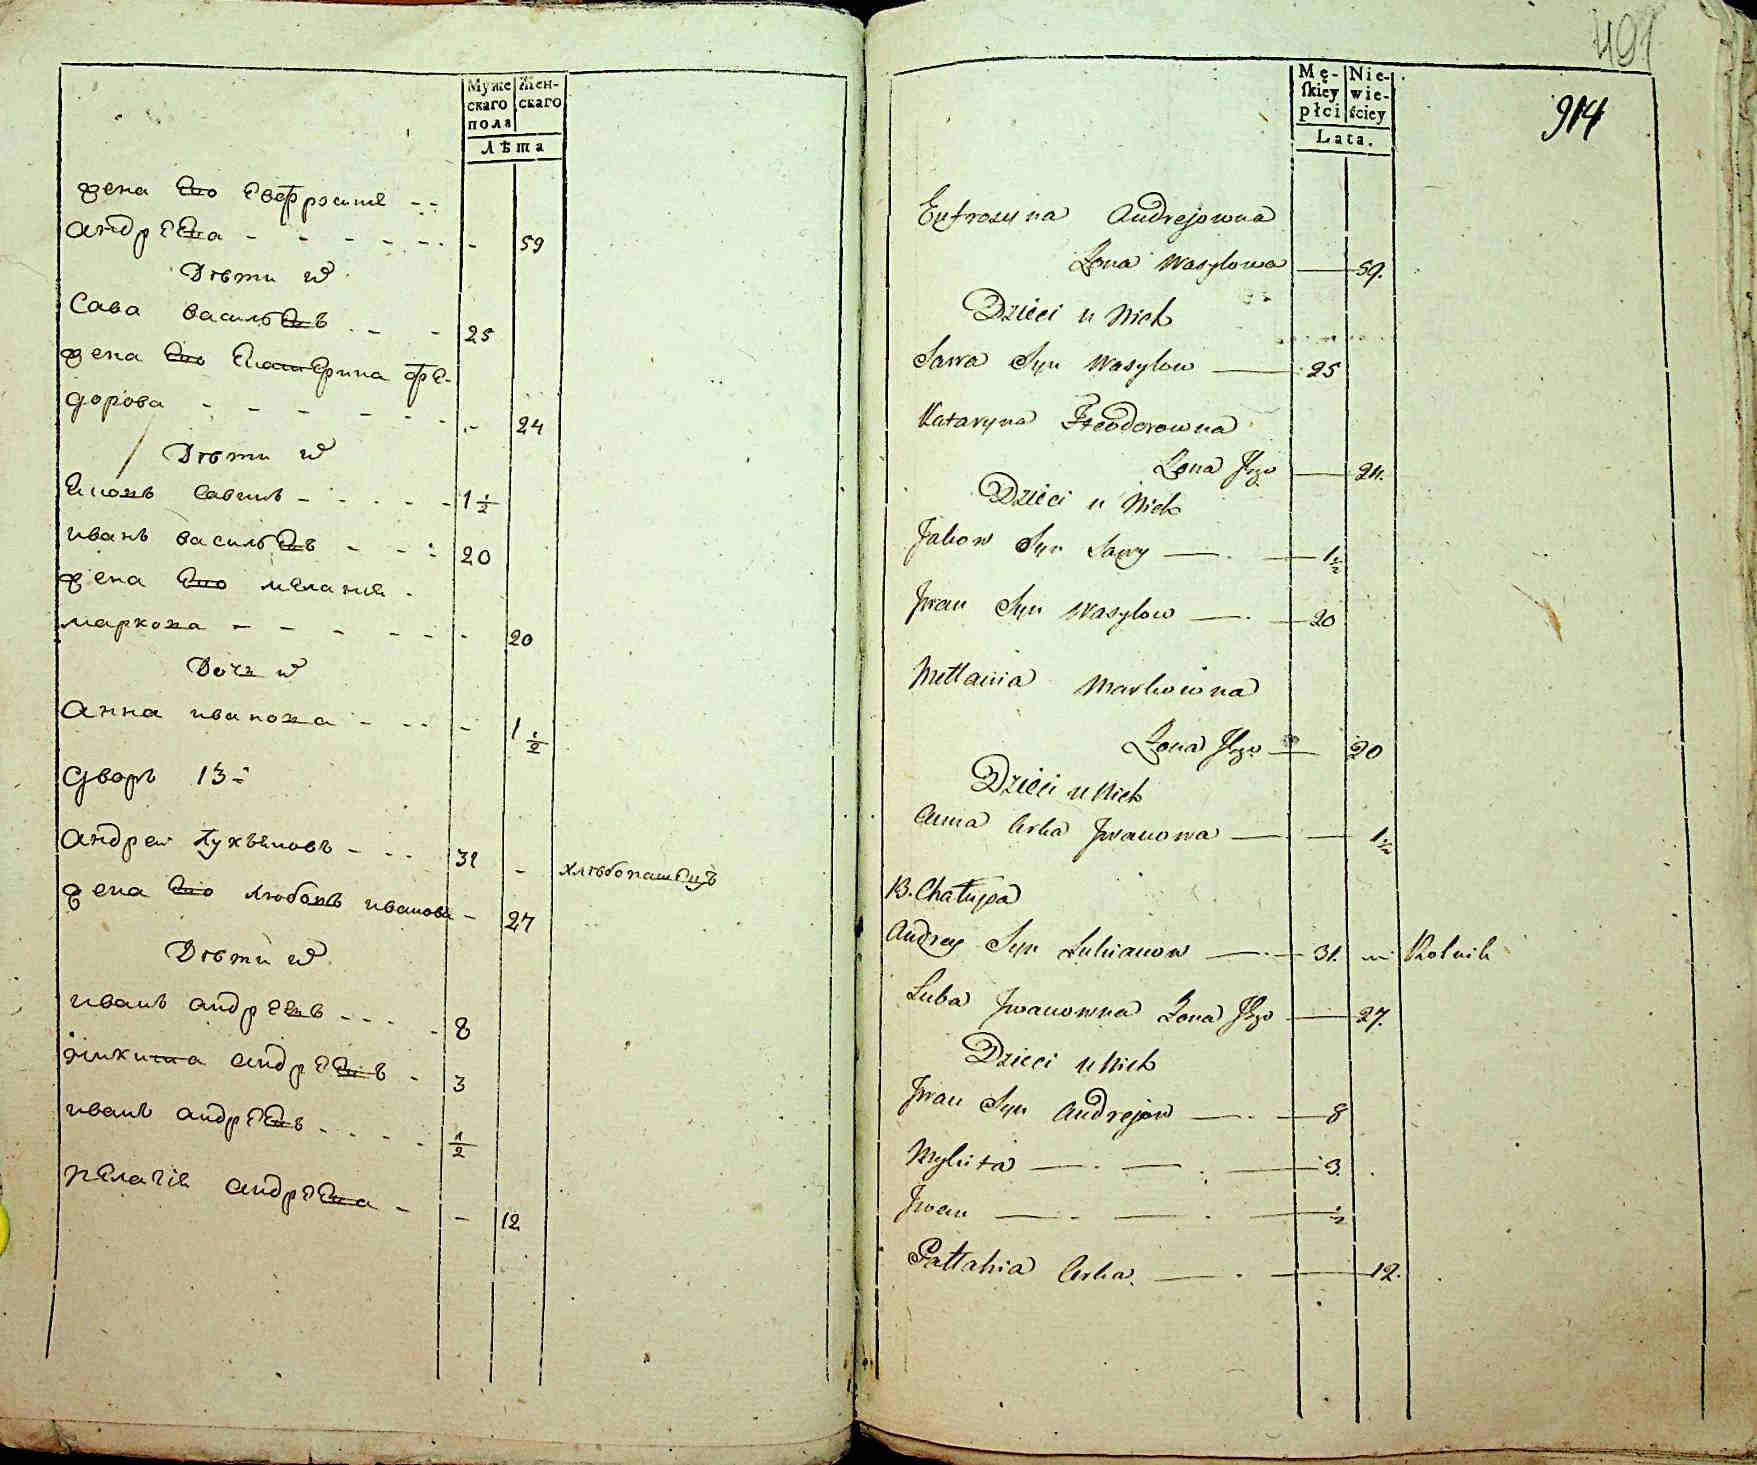 Муже
скаго
пола
Жен-
скаго
Лѣта
жена Его Евфросинѣ - -
андрЕЕва - - - - - - 59
Дѣти их
Сава васильЕвъ - - - 25
жена Его ЕкатЕрина фЕ-
дорова - - - - - - 24
Дѣти их
Яковъ Савинъ - - - - 1 1/2
иванъ васильЕвъ - - - 20
жена Его мЕланиѣ -
маркова - - - - - - 20
Дочъ их
анна иванова - - - - 1 1/2
дворъ 13-й
андреи Лукьяновъ - - - 31 - хлѣбопашЕцъ
жена Его любовь иванова - 27
Дѣти их
иванъ андрЕЕвъ - - - - 8
никита андрЕЕвъ - 3
иванъ андрЕЕвъ - - - - 1/2
пЕлагіѣ андрЕЕва - - 12
491
914
Mę-
skiey
płci
Nie-
wie-
ściey
Lata.
Eufrozyna Andrejowna
Żona Wasylowa — 59.
Dzieci u Nich
Sawa Syn Wasylow — 25
Kataryna Fteodorowna
Żona Jego — 24.
Dzieci u Nich
Jakow Syn Sawy — 1 1/2
Jwan Syn Wasylow — 20
Mełłania Markowna
Żona Jego — 20
Dzieci u Nich
Anna Córka Jwanowa — 1 1/2
13. Chałupa
Andrey Syn Łukianow — 31. — Rolnik
Luba Jwanowna Żona Jego — 27.
Dzieci u Nich
Jwan Syn Andrejow — 8
Mykita — 3.
Jwan — 1/2
Pałłahia Córka. — 12.